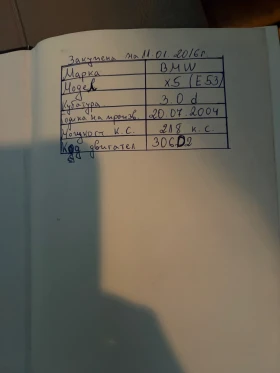 Закупена на 11.01.2016г.
Марка BMW
Модел X5 (E53)
Кубатура 3.0 d
година на произв. 20.07.2004
Мощност к.с. 218 к.с.
Код двигател 306D2